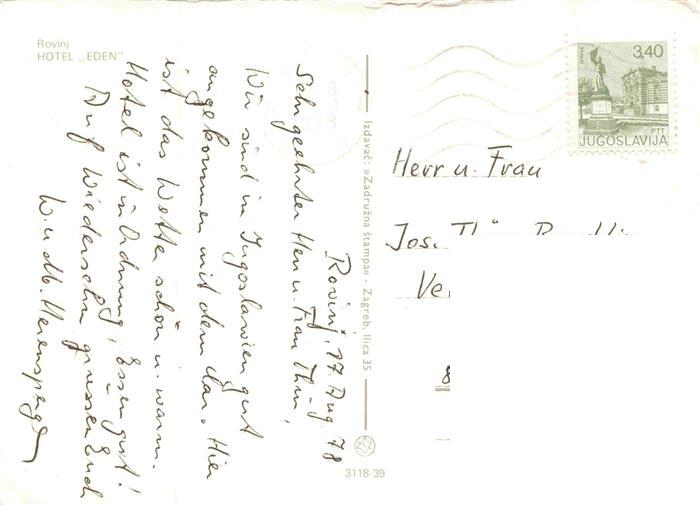 Rovinj
HOTEL „EDEN"
Rovinj, 17. Aug 78
Sehr geehrter Herr u. Frau Thür,
Wir sind in Jugoslawien gut
angekommen mit dem Car. Hier
ist das Wetter schön u. warm.
Hotel ist in Ordnung, Essen gut!
Auf Wiedersehn grüssen Euch
W. u. M.
Izdavač: »Zadružna štampa« - Zagreb, Ilica 35
3118-39
3,40
PTT
JUGOSLAVIJA
Herr u. Frau
Jos.